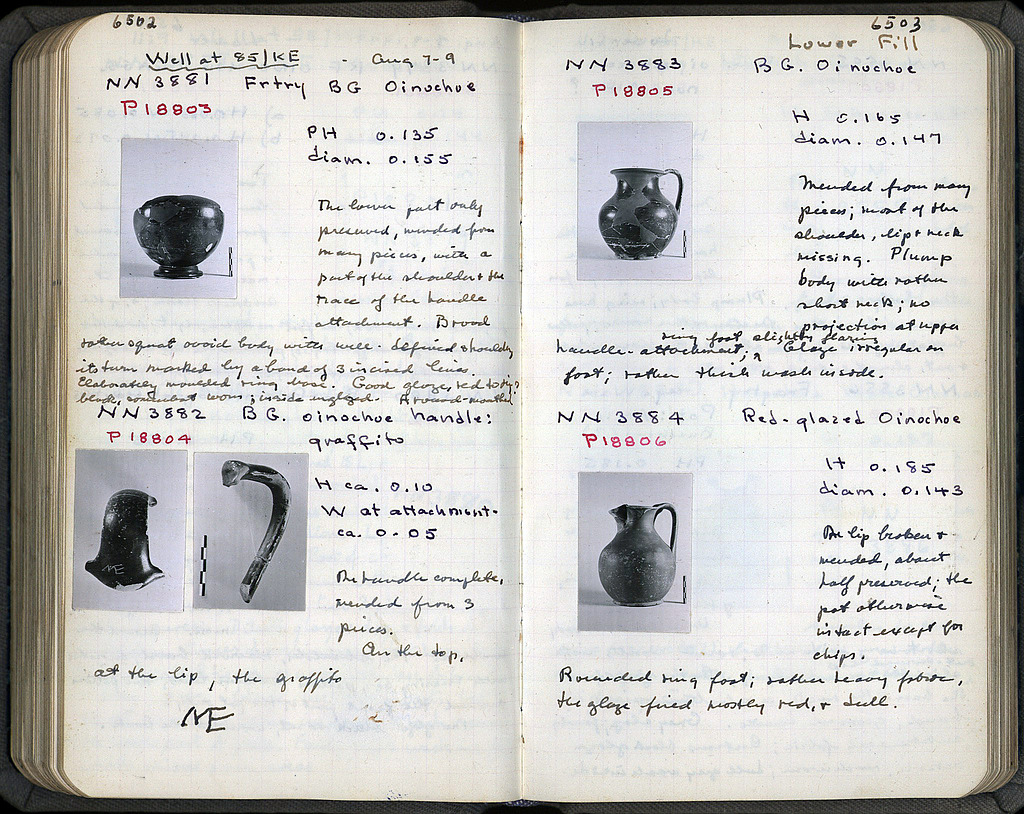 6502
Well at 85/KE - Aug 7-9
NN 3881 Frtry BG Oinochoe
P18803
PH 0.135
diam. 0.155
The lower part only
preserved, mended from
many pieces, with a
part of the shoulder & the
trace of the handle
attachment. Broad
rather squat ovoid body with well-defined shoulder,
its turn marked by a band of 3 incised lines.
Elaborately moulded ring base. Good glaze, red to
black, somewhat worn; inside unglazed. Round-mouthed
NN 3882 BG. oinochoe handle:
P18804 graffito
H ca. 0.10
W at attachment-
ca. 0.05
The handle complete,
mended from 3
pieces.
On the top,
at the lip, the graffito
NE
6503
Lower Fill
NN 3883 B G. Oinochoe
P18805
H 0.165
diam. 0.147
Mended from many
pieces; most of the
shoulder, lip & neck
missing. Plump
body with rather
short neck; no
projection at upper
handle-attachment; ring foot slightly flaring Glaze irregular on
foot; rather thick wash inside.
NN 3884 Red-glazed Oinochoe
P18806
H 0.185
diam. 0.143
The lip broken &
mended, about
half preserved; the
pot otherwise
intact except for
chips.
Rounded ring foot; rather heavy fabric,
the glaze fired mostly red, & dull.